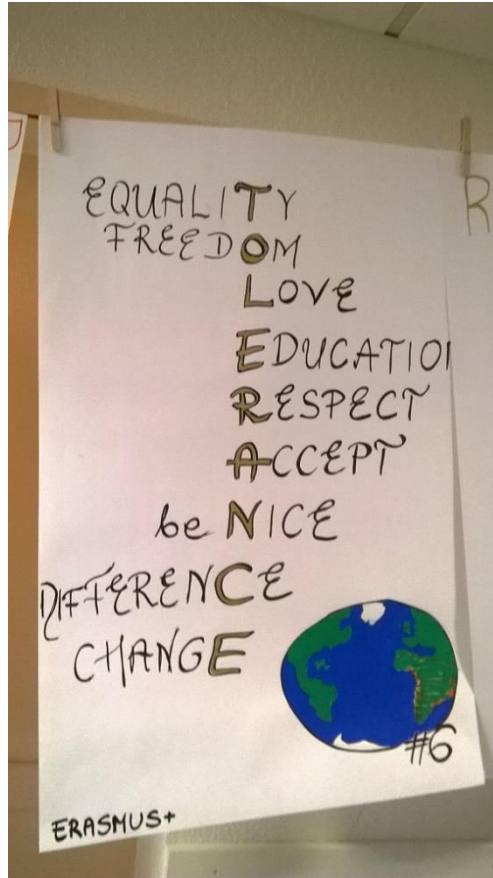 EQUALITY
FREEDOM
LOVE
EDUCATION
RESPECT
ACCEPT
be NICE
DIFFERENCE
CHANGE
#6
ERASMUS+
R